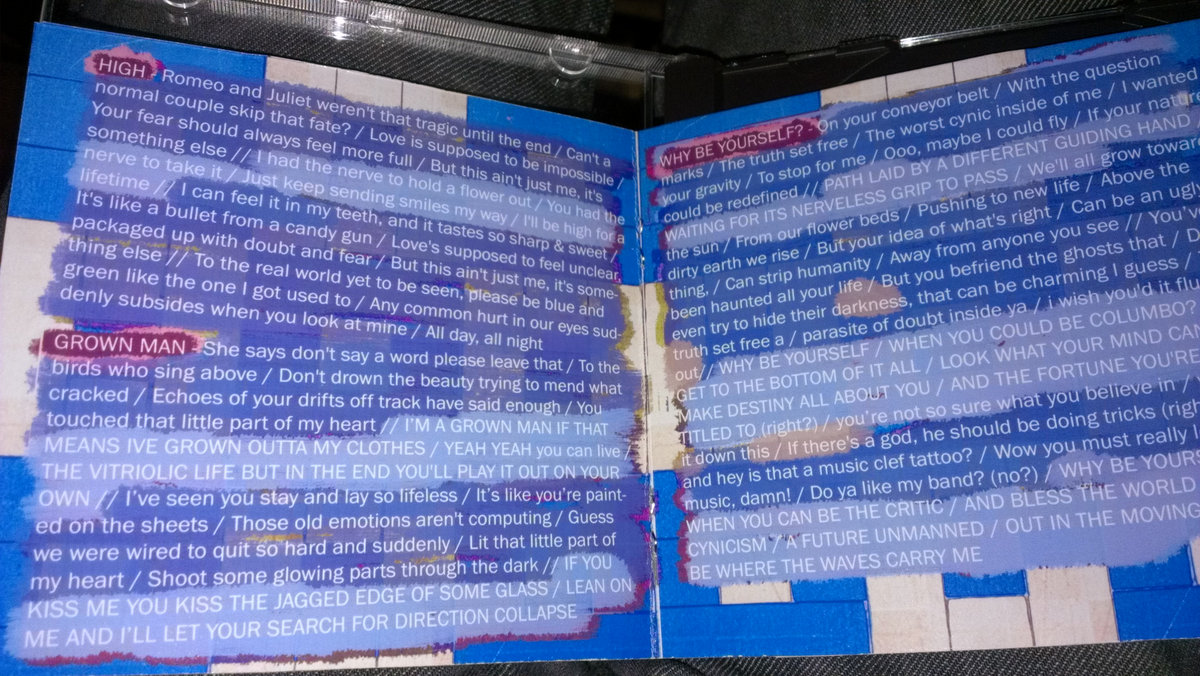 HIGH Romeo and Juliet weren't that tragic until the end / Can't a
normal couple skip that fate? / Love is supposed to be impossible /
Your fear should always feel more full / But this ain't just me, it's
something else // I had the nerve to hold a flower out / You had the
nerve to take it / Just keep sending smiles my way / I'll be high for a
lifetime // I can feel it in my teeth, and it tastes so sharp & sweet /
It's like a bullet from a candy gun / Love's supposed to feel unclear,
packaged up with doubt and fear / But this ain't just me, it's some-
thing else // To the real world yet to be seen, please be blue and
green like the one I got used to / Any common hurt in our eyes sud-
denly subsides when you look at mine / All day, all night
GROWN MAN She says don't say a word please leave that / To the
birds who sing above / Don't drown the beauty trying to mend what
cracked / Echoes of your drifts off track have said enough / You
touched that little part of my heart // I'M A GROWN MAN IF THAT
MEANS IVE GROWN OUTTA MY CLOTHES / YEAH YEAH you can live /
THE VITRIOLIC LIFE BUT IN THE END YOU'LL PLAY IT OUT ON YOUR
OWN // I've seen you stay and lay so lifeless / It's like you're paint-
ed on the sheets / Those old emotions aren't computing / Guess
we were wired to quit so hard and suddenly / Lit that little part of
my heart / Shoot some glowing parts through the dark // IF YOU
KISS ME YOU KISS THE JAGGED EDGE OF SOME GLASS / LEAN ON
ME AND I'LL LET YOUR SEARCH FOR DIRECTION COLLAPSE
WHY BE YOURSELF? - On your conveyor belt / With the question
marks / The truth set free / The worst cynic inside of me / I wanted
your gravity / To stop for me / Ooo, maybe I could fly / If your
could be redefined // PATH LAID BY A DIFFERENT GUIDING HAND
WAITING FOR ITS NERVELESS GRIP TO PASS / We'll all grow
the sun / From our flower beds / Pushing to new life / Above the
dirty earth we rise / But your idea of what's right / Can be an
thing, / Can strip humanity / Away from anyone you see //
been haunted all your life / But you befriend the ghosts that /
even try to hide their darkness, that can be charming I guess /
truth set free a / parasite of doubt inside ya / i wish you'd it
out // WHY BE YOURSELF / WHEN YOU COULD BE COLUMBO?
GET TO THE BOTTOM OF IT ALL / LOOK WHAT YOUR MIND
MAKE DESTINY ALL ABOUT YOU / AND THE FORTUNE YOU'RE
TITLED TO (right?) / you're not so sure what you believe in /
it down this / If there's a god, he should be doing tricks
and hey is that a music clef tattoo? / Wow you must really
music, damn! / Do ya like my band? (no?) / WHY BE
WHEN YOU CAN BE THE CRITIC / AND BLESS THE WORLD
CYNICISM / A FUTURE UNMANNED / OUT IN THE MOVING
BE WHERE THE WAVES CARRY ME